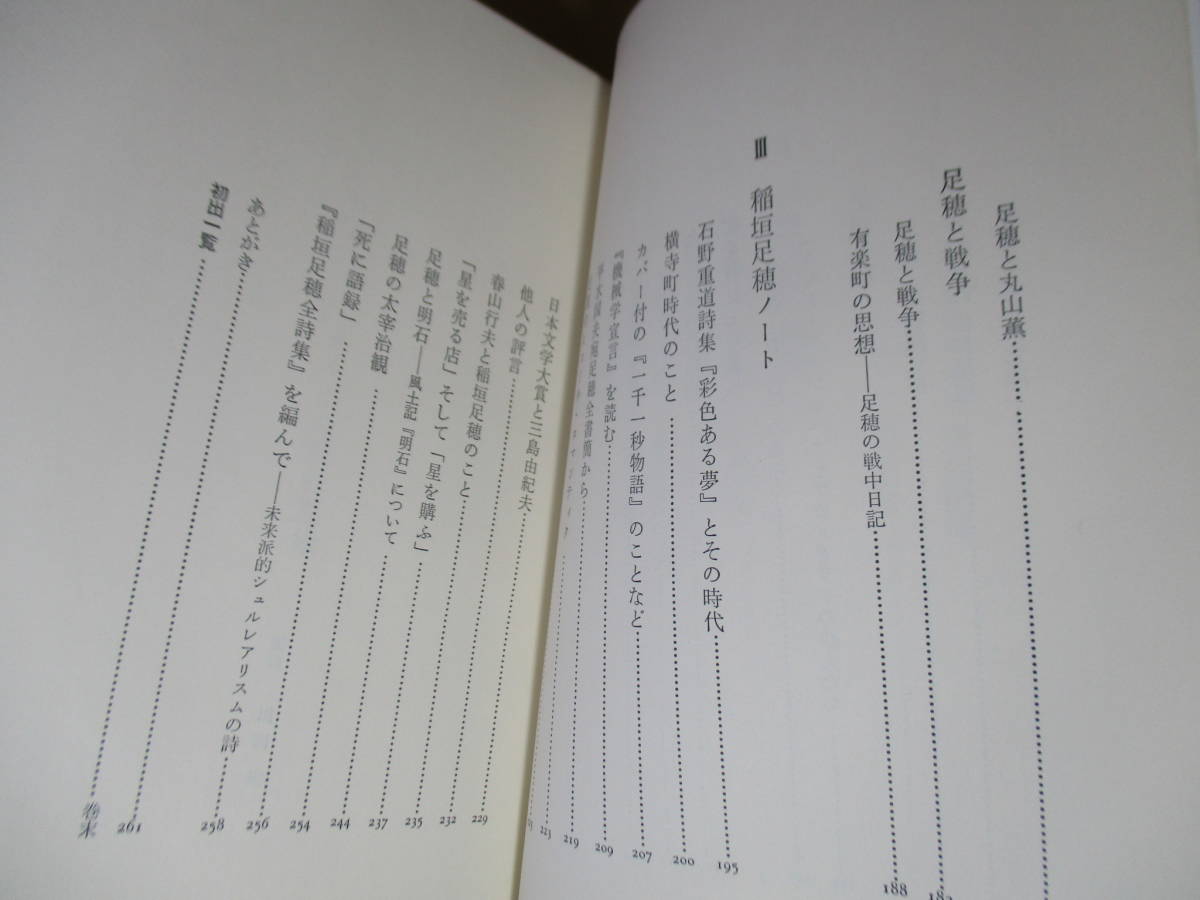 足穂と丸山薫
足穂と戦争
足穂と戦争
有楽町の思想——足穂の戦中日記 188
Ⅲ 稲垣足穂ノート
石野重道詩集『彩色ある夢』とその時代 195
横寺町時代のこと 200
カバー付の『一千一秒物語』のことなど 207
『機械学宣言』を読む 209
木国夫宛足穂全書簡から 219
マンティク 223
日本文学大賞と三島由紀夫 229
他人の評言 232
春山行夫と稲垣足穂のこと 235
「星を売る店」そして「星を購ふ」 237
足穂と明石——風土記『明石』について 244
足穂の太宰治観 254
「死に語録」 256
『稲垣足穂全詩集』を編んで——未来派的シュルレアリスムの詩 258
あとがき 261
初出一覧 巻末